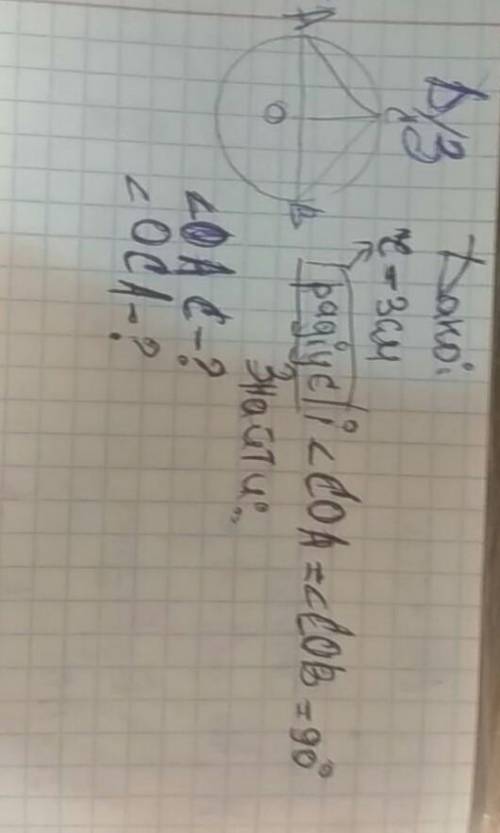 Д/З
A
C
O
B
Дано:
r = 3см
радіус і <COA = <COB = 90°
Знайти:
<OAC - ?
<OCA - ?